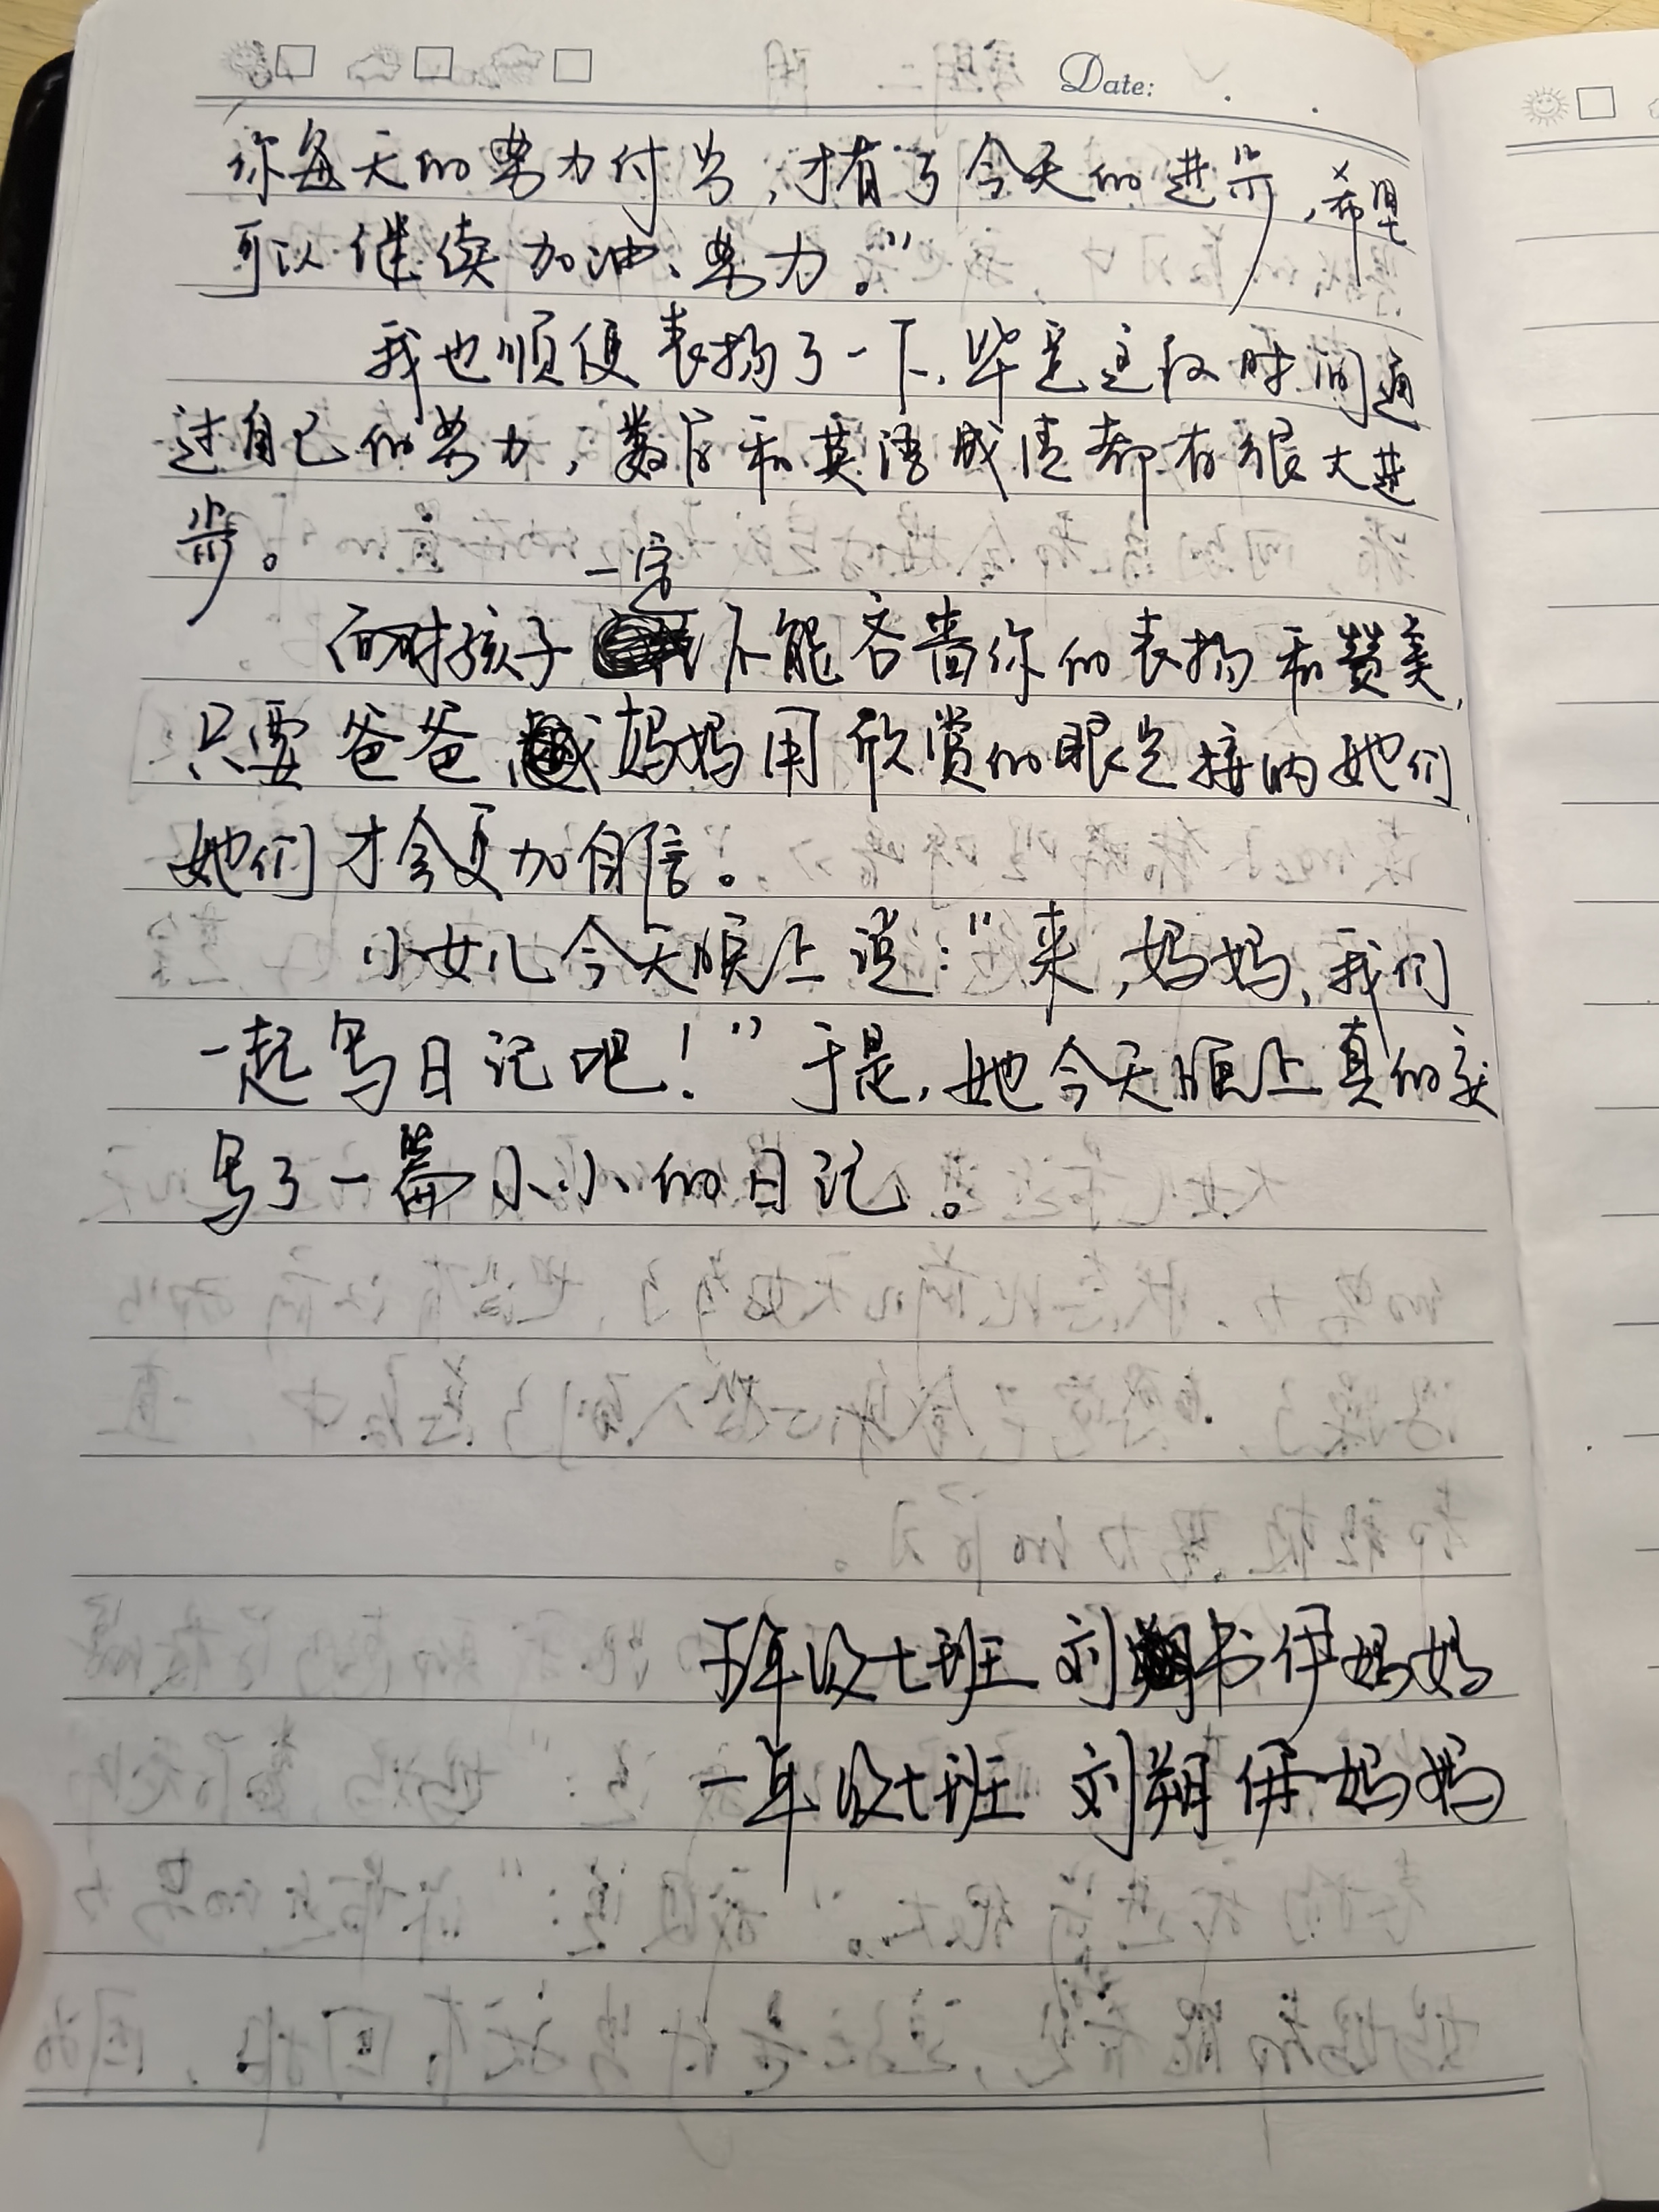 Date:
你每天的努力付出，才有了今天的进步，希望
可以继续加油、努力。”
我也顺便表扬了一下，毕竟这段时间通
过自己的努力，数学和英语成绩都有很大进
步。
面对孩子一定不能吝啬你的表扬和赞美，
只要爸爸妈妈用欣赏的眼光接纳她们，
她们才会更加自信。
小女儿今天晚上说：“来，妈妈，我们
一起写日记吧！”于是，她今天晚上真的
写了一篇小小的日记。
年级七班 刘书伊妈妈
一年级七班 刘翊伊妈妈